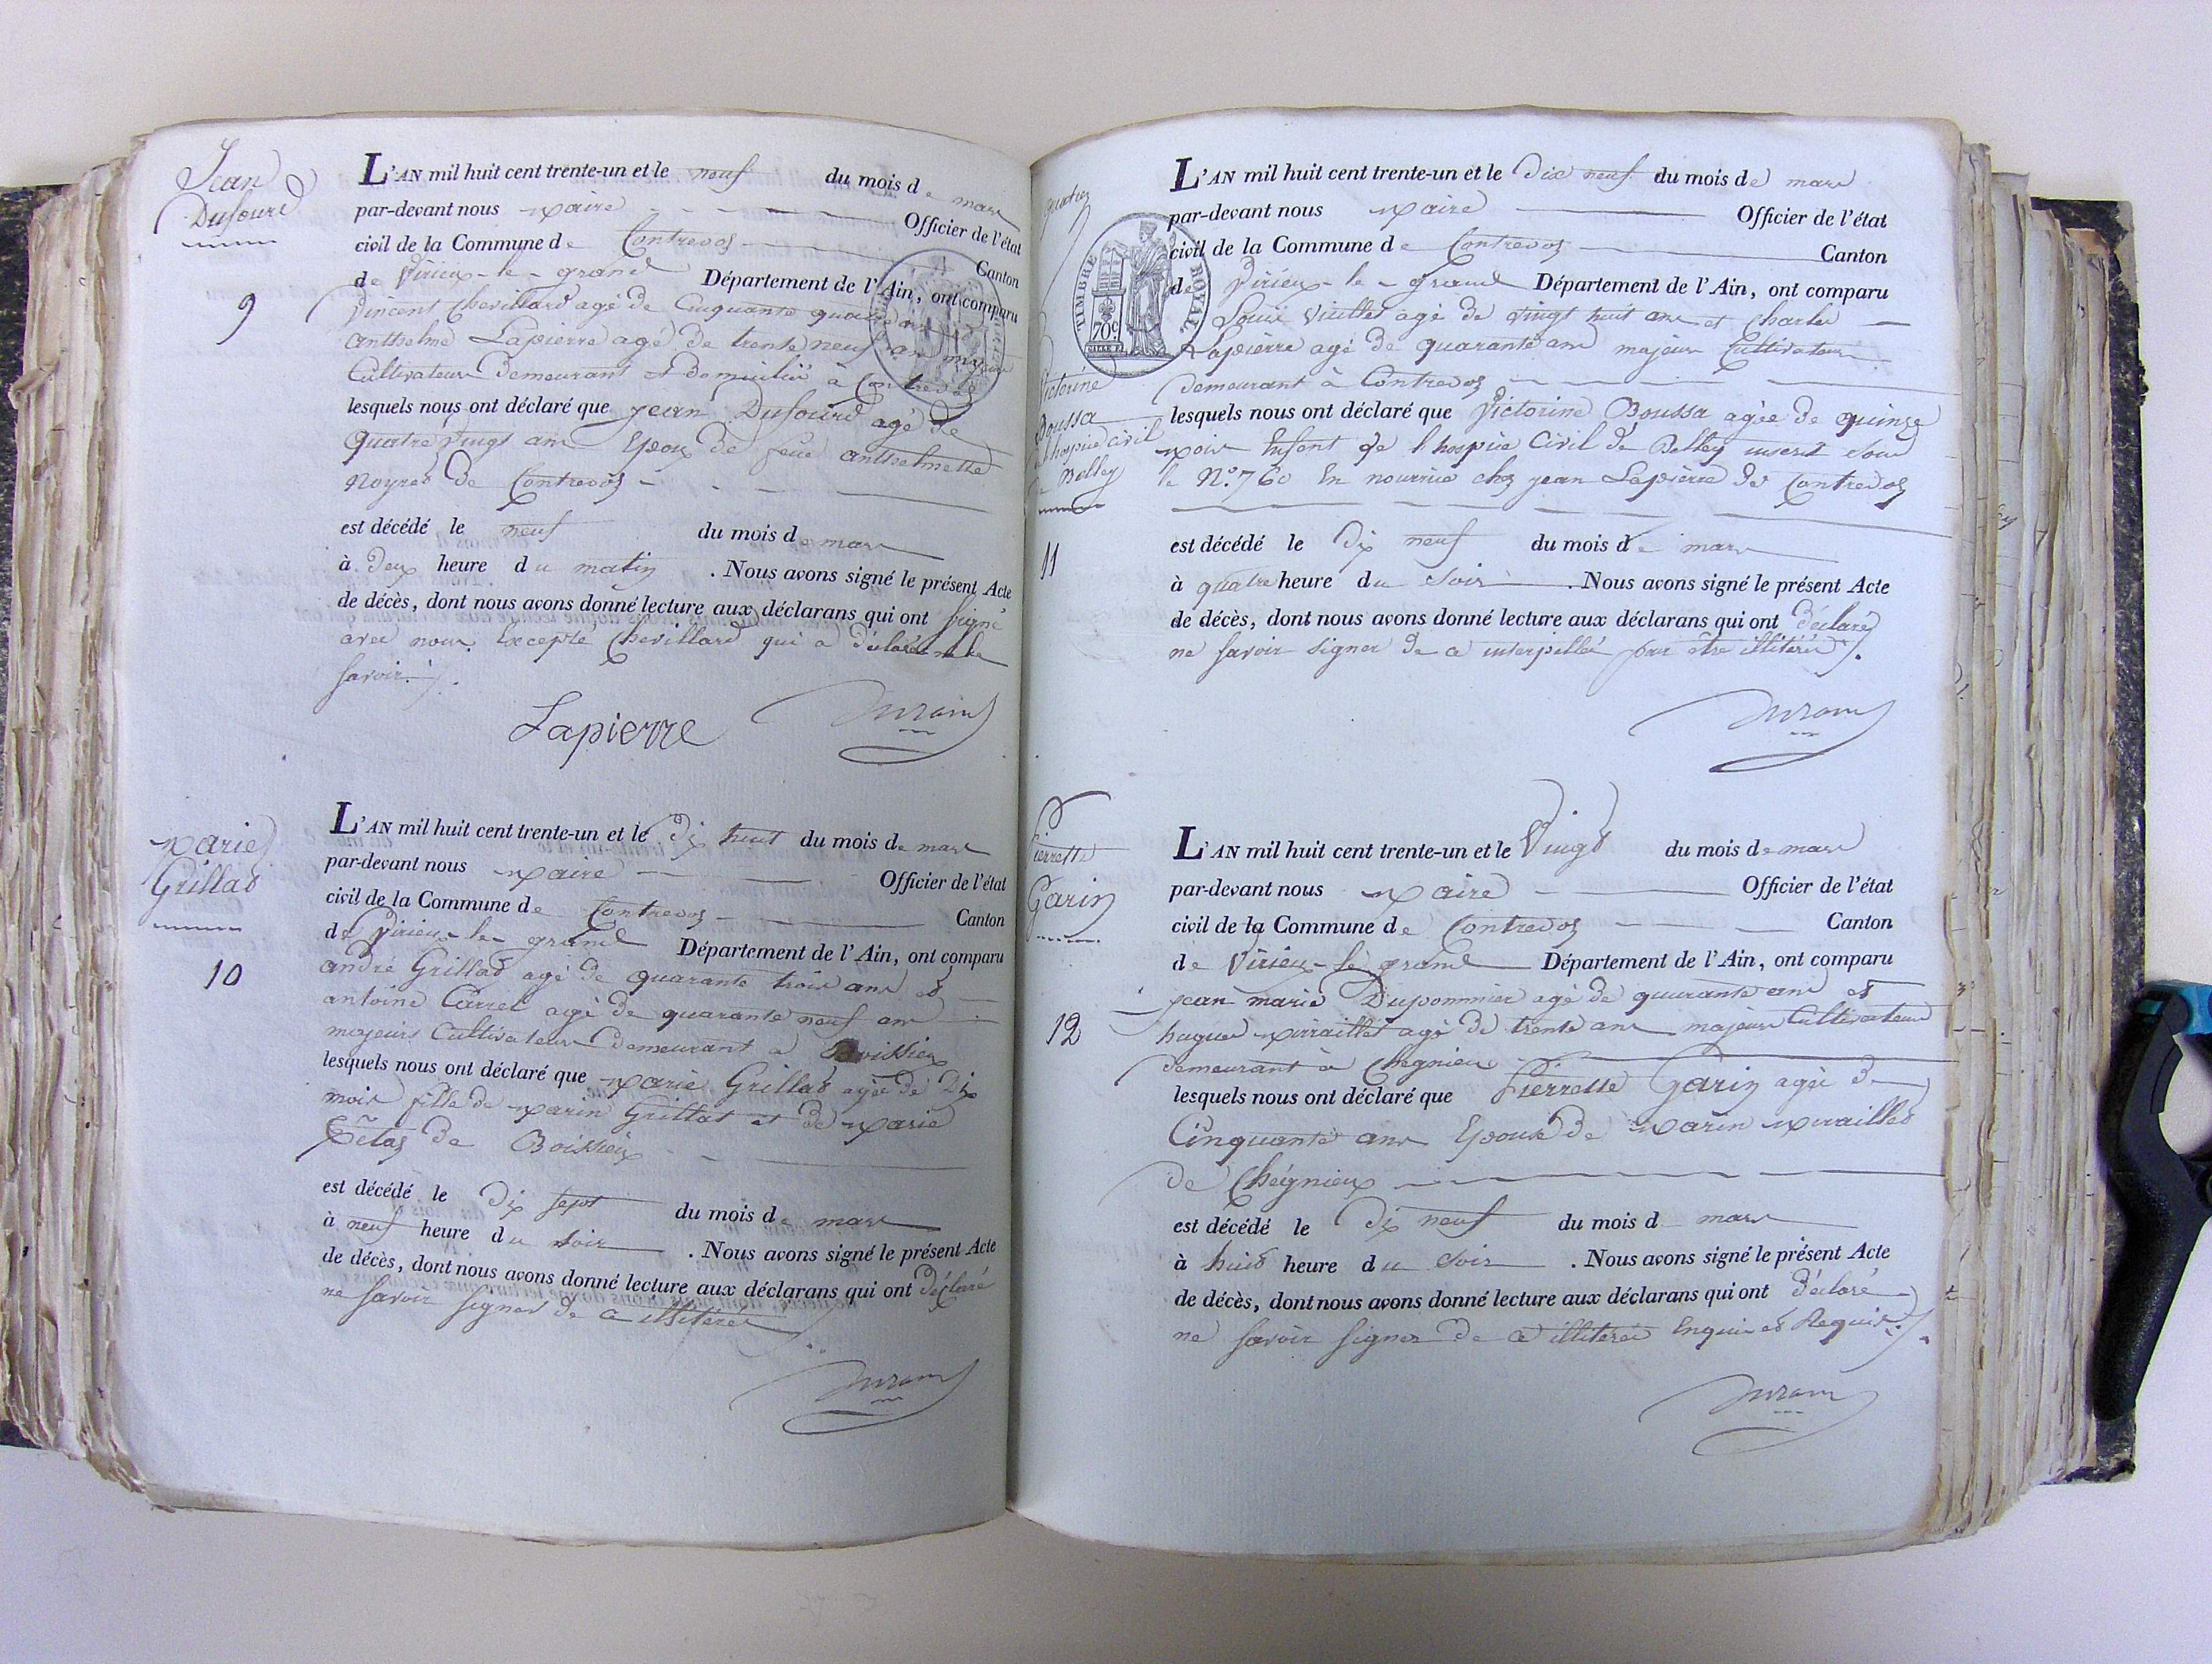 Jean
Dufourd
9
L'AN mil huit cent trente-un et le neuf du mois de mars
par-devant nous Maire Officier de l'état
civil de la Commune de Contrevoz Canton
de Virieux-le-grand Département de l'Ain, ont comparu
Vincent Chevillard agé de Cinquante quatre ans
Anthelme Lapierre agé de trente neuf ans majeurs
Cultivateurs Demeurant et Domicilié à Contrevoz
lesquels nous ont déclaré que Jean Dufourd agé de
quatre vingt ans Epoux de feue Anthelmette
Noyret de Contrevoz
est décédé le neuf du mois de mars
à Deux heure du matin . Nous avons signé le présent Acte
de décès, dont nous avons donné lecture aux déclarans qui ont signé
avec nous Excepté Chevillard qui a déclaré ne le
savoir ./.
Lapierre
Marie
Grillat
10
L'AN mil huit cent trente-un et le Dix huit du mois de mars
par-devant nous Maire Officier de l'état
civil de la Commune de Contrevoz Canton
de Virieux-le-grand Département de l'Ain, ont comparu
andré Grillat agé de quarante trois ans et
antoine Carrel agé de quarante neuf ans
majeurs Cultivateurs Demeurant a Boissieu
lesquels nous ont déclaré que Marie Grillat agée de Dix
mois fille de Marin Grillat et de Marie
de Boissieux
est décédé le Dix sept du mois de mars
à neuf heure du soir . Nous avons signé le présent Acte
de décès, dont nous avons donné lecture aux déclarans qui ont Déclaré
ne savoir signer de ce illitérés
quatre
TIMBRE ROYAL
70c
Victorine
Boussa
de l'hospice civil
de Belley
11
L'AN mil huit cent trente-un et le Dix neuf du mois de mars
par-devant nous Maire Officier de l'état
civil de la Commune de Contrevoz Canton
de Virieux-le-grand Département de l'Ain, ont comparu
Louis Vuillet agé de vingt huit ans et Charles
Lapierre agé de quarante ans majeurs Cultivateurs
Demeurant à Contrevoz
lesquels nous ont déclaré que Victorine Boussa agée de quinze
mois Enfant de l'hospice Civil de Belley inscrit sous
le N.° 760 En nourrice chez jean Lapierre de Contrevoz
est décédé le Dix neuf du mois de mars
à quatre heure du soir . Nous avons signé le présent Acte
de décès, dont nous avons donné lecture aux déclarans qui ont déclaré
ne savoir signer de ce interpellés pour être illitérés ./.
Pierrette
Garin
12
L'AN mil huit cent trente-un et le Vingt du mois de mars
par-devant nous Maire Officier de l'état
civil de la Commune de Contrevoz Canton
de Virieux-le-grand Département de l'Ain, ont comparu
jean marie Dupommier agé de quarante ans et
hugues Miraillet agé de trente ans majeurs Cultivateurs
Demeurant à Cheignieu
lesquels nous ont déclaré que Pierrette Garin agée de
Cinquante ans Epouse de Marin Miraillet
de Cheignieux
est décédé le Dix neuf du mois d mars
à huit heure du soir . Nous avons signé le présent Acte
de décès, dont nous avons donné lecture aux déclarans qui ont déclaré
ne savoir signer de ce illitérés Enquis et Requis ./.